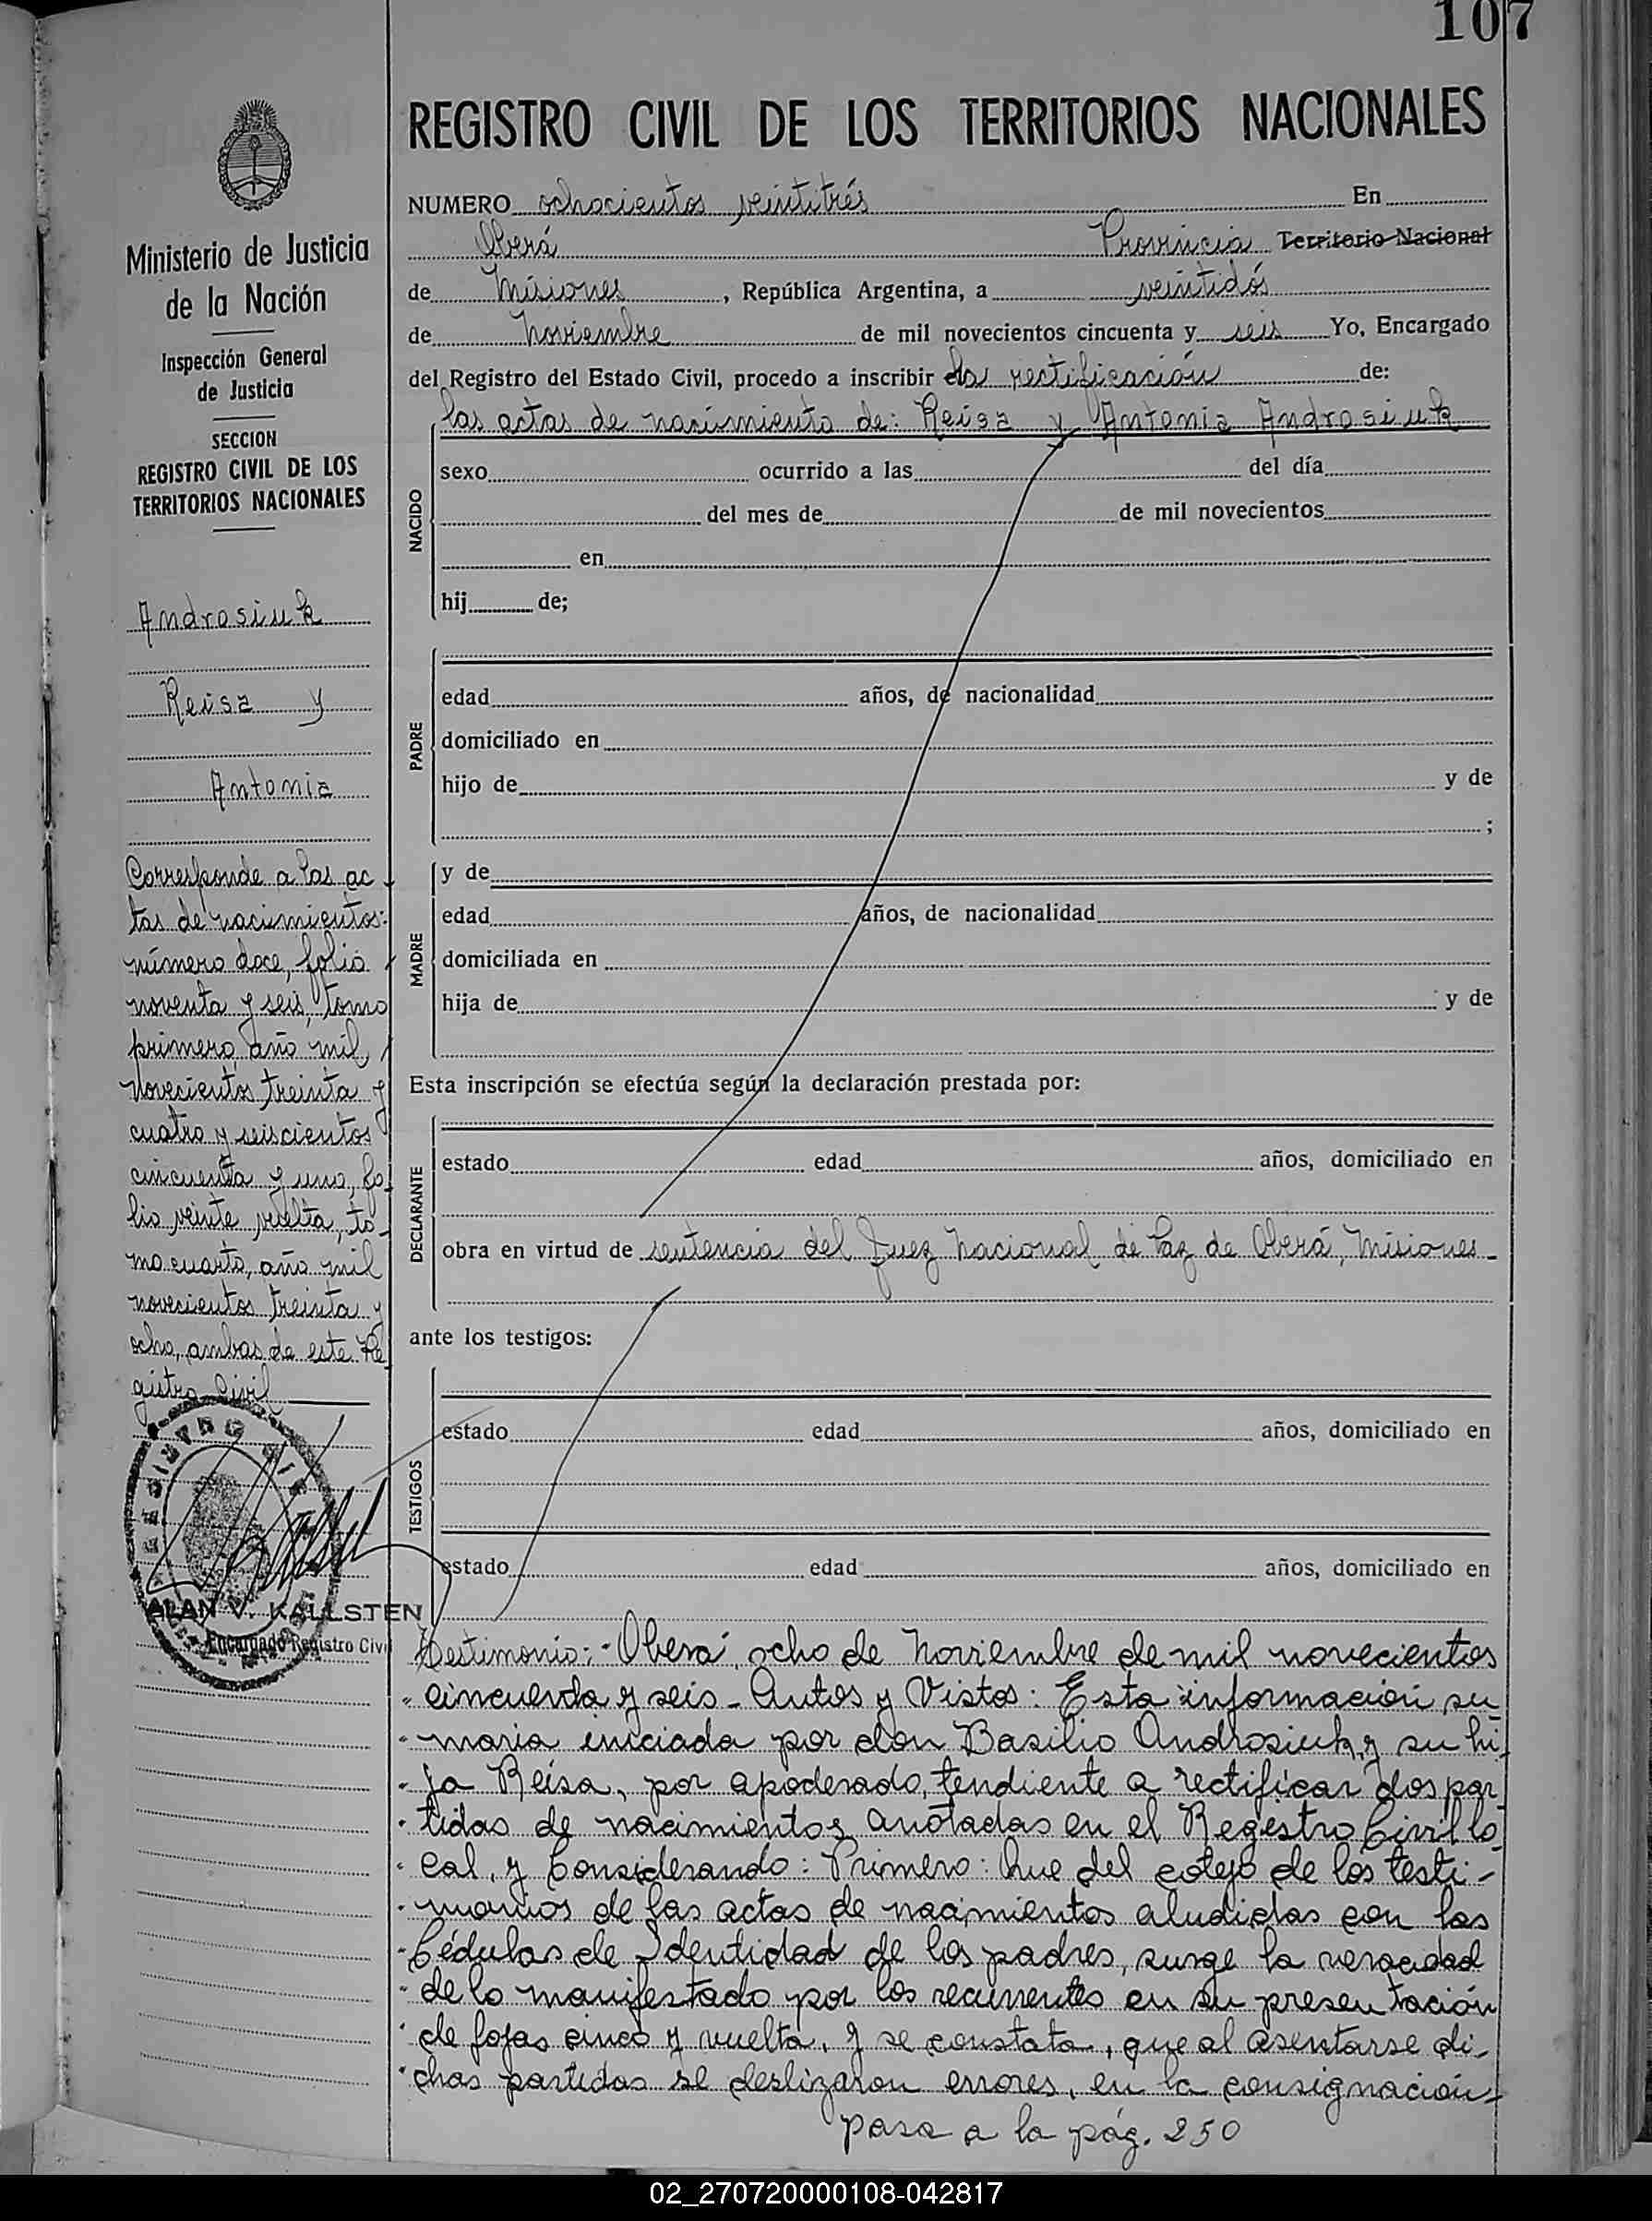 107
REGISTRO CIVIL DE LOS TERRITORIOS NACIONALES
NUMERO ochocientos veintitrés En
Oberá Provincia Territorio Nacional
de Misiones, República Argentina, a veintidós
de Noviembre de mil novecientos cincuenta y seis Yo, Encargado
del Registro del Estado Civil, procedo a inscribir la rectificación de:
las actas de nacimiento de: Reisa y Antonia Androsiuk
NACIDO
sexo ocurrido a las del día
del mes de de mil novecientos
en
hij de;
PADRE
edad años, de nacionalidad
domiciliado en
hijo de y de
;
MADRE
y de
edad años, de nacionalidad
domiciliada en
hija de y de
Esta inscripción se efectúa según la declaración prestada por:
DECLARANTE
estado edad años, domiciliado en
obra en virtud de sentencia del Juez Nacional de Paz de Oberá, Misiones
ante los testigos:
TESTIGOS
estado edad años, domiciliado en
estado edad años, domiciliado en
Testimonio: "Oberá, ocho de Noviembre de mil novecientos
" cincuenta y seis - Autos y Vistos: Esta información su-
" maria iniciada por don Basilio Androsiuk y su hi-
" ja Reisa, por apoderado, tendiente a rectificar dos par-
" tidas de nacimientos anotadas en el Registro Civil lo-
" cal, y Considerando: Primero: Que del cotejo de los testi-
" monios de las actas de nacimientos aludidas con las
" Cédulas de Identidad de los padres, surge la veracidad
" de lo manifestado por los recurrentes en su presentación
" de fojas cinco y vuelta, y se constata, que al asentarse di-
" chas partidas se deslizaron errores, en la consignación
pasa a la pág. 250
Ministerio de Justicia
de la Nación
Inspección General
de Justicia
SECCION
REGISTRO CIVIL DE LOS
TERRITORIOS NACIONALES
Androsiuk
Reisa y
Antonia
Corresponde a las ac
tas de nacimientos:
número doce, folio
noventa y seis, tomo
primero, año mil
novecientos treinta y
cuatro y seiscientos
cincuenta y uno, fo-
lio veinte vuelta, to-
mo cuarto, año mil
novecientos treinta y
ocho, ambas de este Re
gistro Civil
ALAN V. KALLSTEN
Encargado Registro Civil
02_270720000108-042817